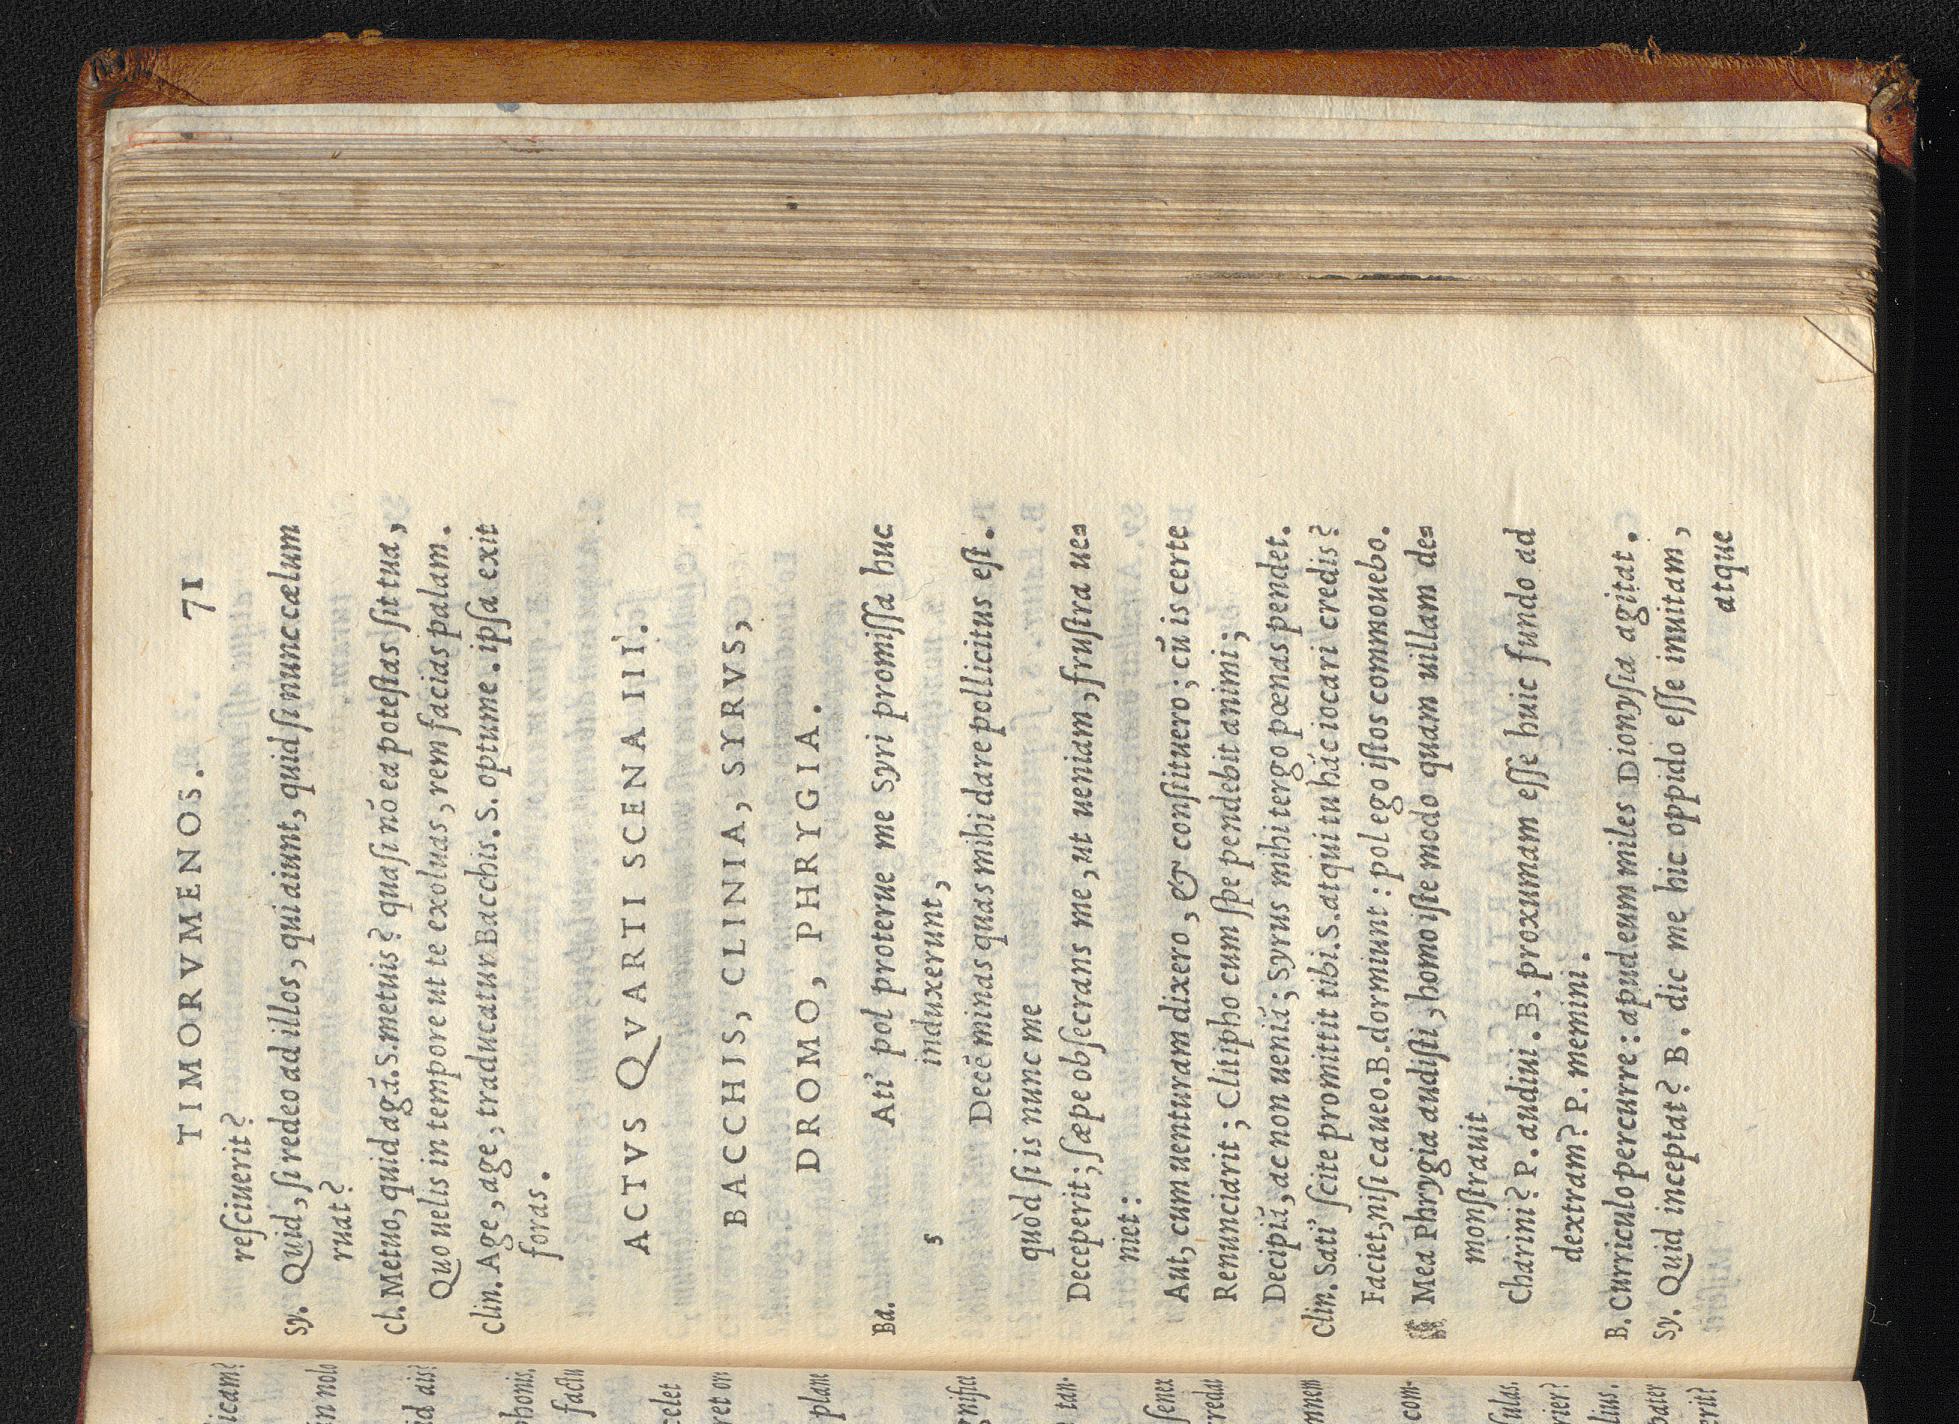 TIMORVMENOS. 71
resciuerit?
Sy. Quid, si redeo ad illos, qui aiunt, quid si nunc cælum
ruat?
Cl. Metuo, quid agā. S. metuis? quasi nō ea potestas sit tua,
Quo uelis in tempore ut te exoluas, rem facias palam.
Clin. Age, age, traducatur Bacchis. S. optume. ipsa exit
foras.
ACTVS QVARTI SCENA III'.
BACCHIS, CLINIA, SYRVS,
DROMO, PHRYGIA.
Ba. Ati' pol proterue me Syri promissa huc
s induxerunt,
Decē minas quas mihi dare pollicitus est.
quòd si is nunc me
Deceperit; sæpe obsecrans me, ut ueniam, frustra ue=
niet:
Aut, cum uenturam dixero, & consituero; cū is certe
Renunciarit; Clitipho cum spe pendebit animi;
Decipiā, ac non ueniā; Syrus mihi tergo pœnas pendet.
Clin. Sati' scite promittit tibi. S. atqui tu hāc iocari credis?
Faciet, nisi caueo. B. dormiunt: pol ego istos commouebo.
Mea Phrygia audisti, homo iste modo quam uillam de=
monstrauit
Charini? P. audiui. B. proxumam esse huic fundo ad
dextram? P. memini.
B. Curriculo percurre: apud eum miles Dionysia agitat.
Sy. Quid inceptat? B. dic me hic oppido esse inuitam,
atque
icam?
in nolo
dis?
phonis.
factu
celet
ret on
plane
tan-
senex
mnem
com-
sulas.
rier?
lius.
pater
erit?